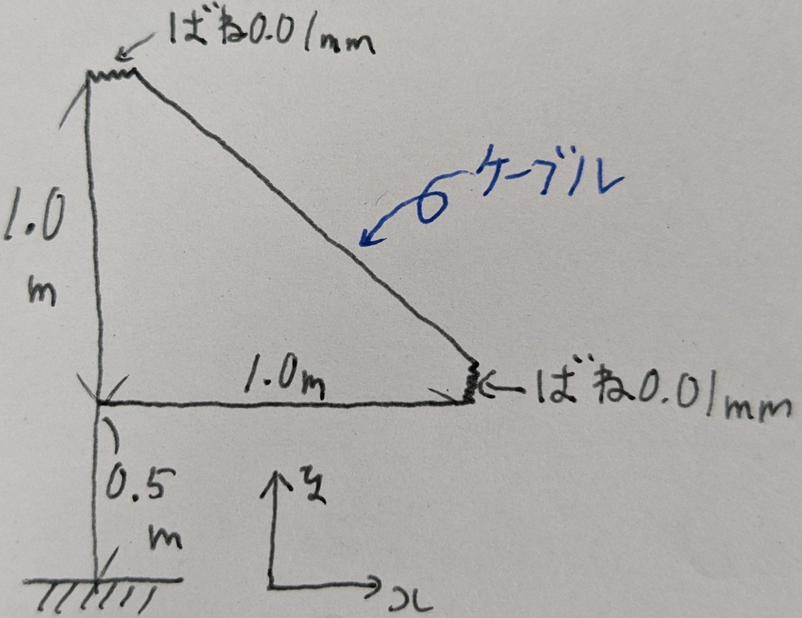 ばね0.01mm
ケーブル
1.0
m
1.0m
ばね0.01mm
0.5
m
z
x